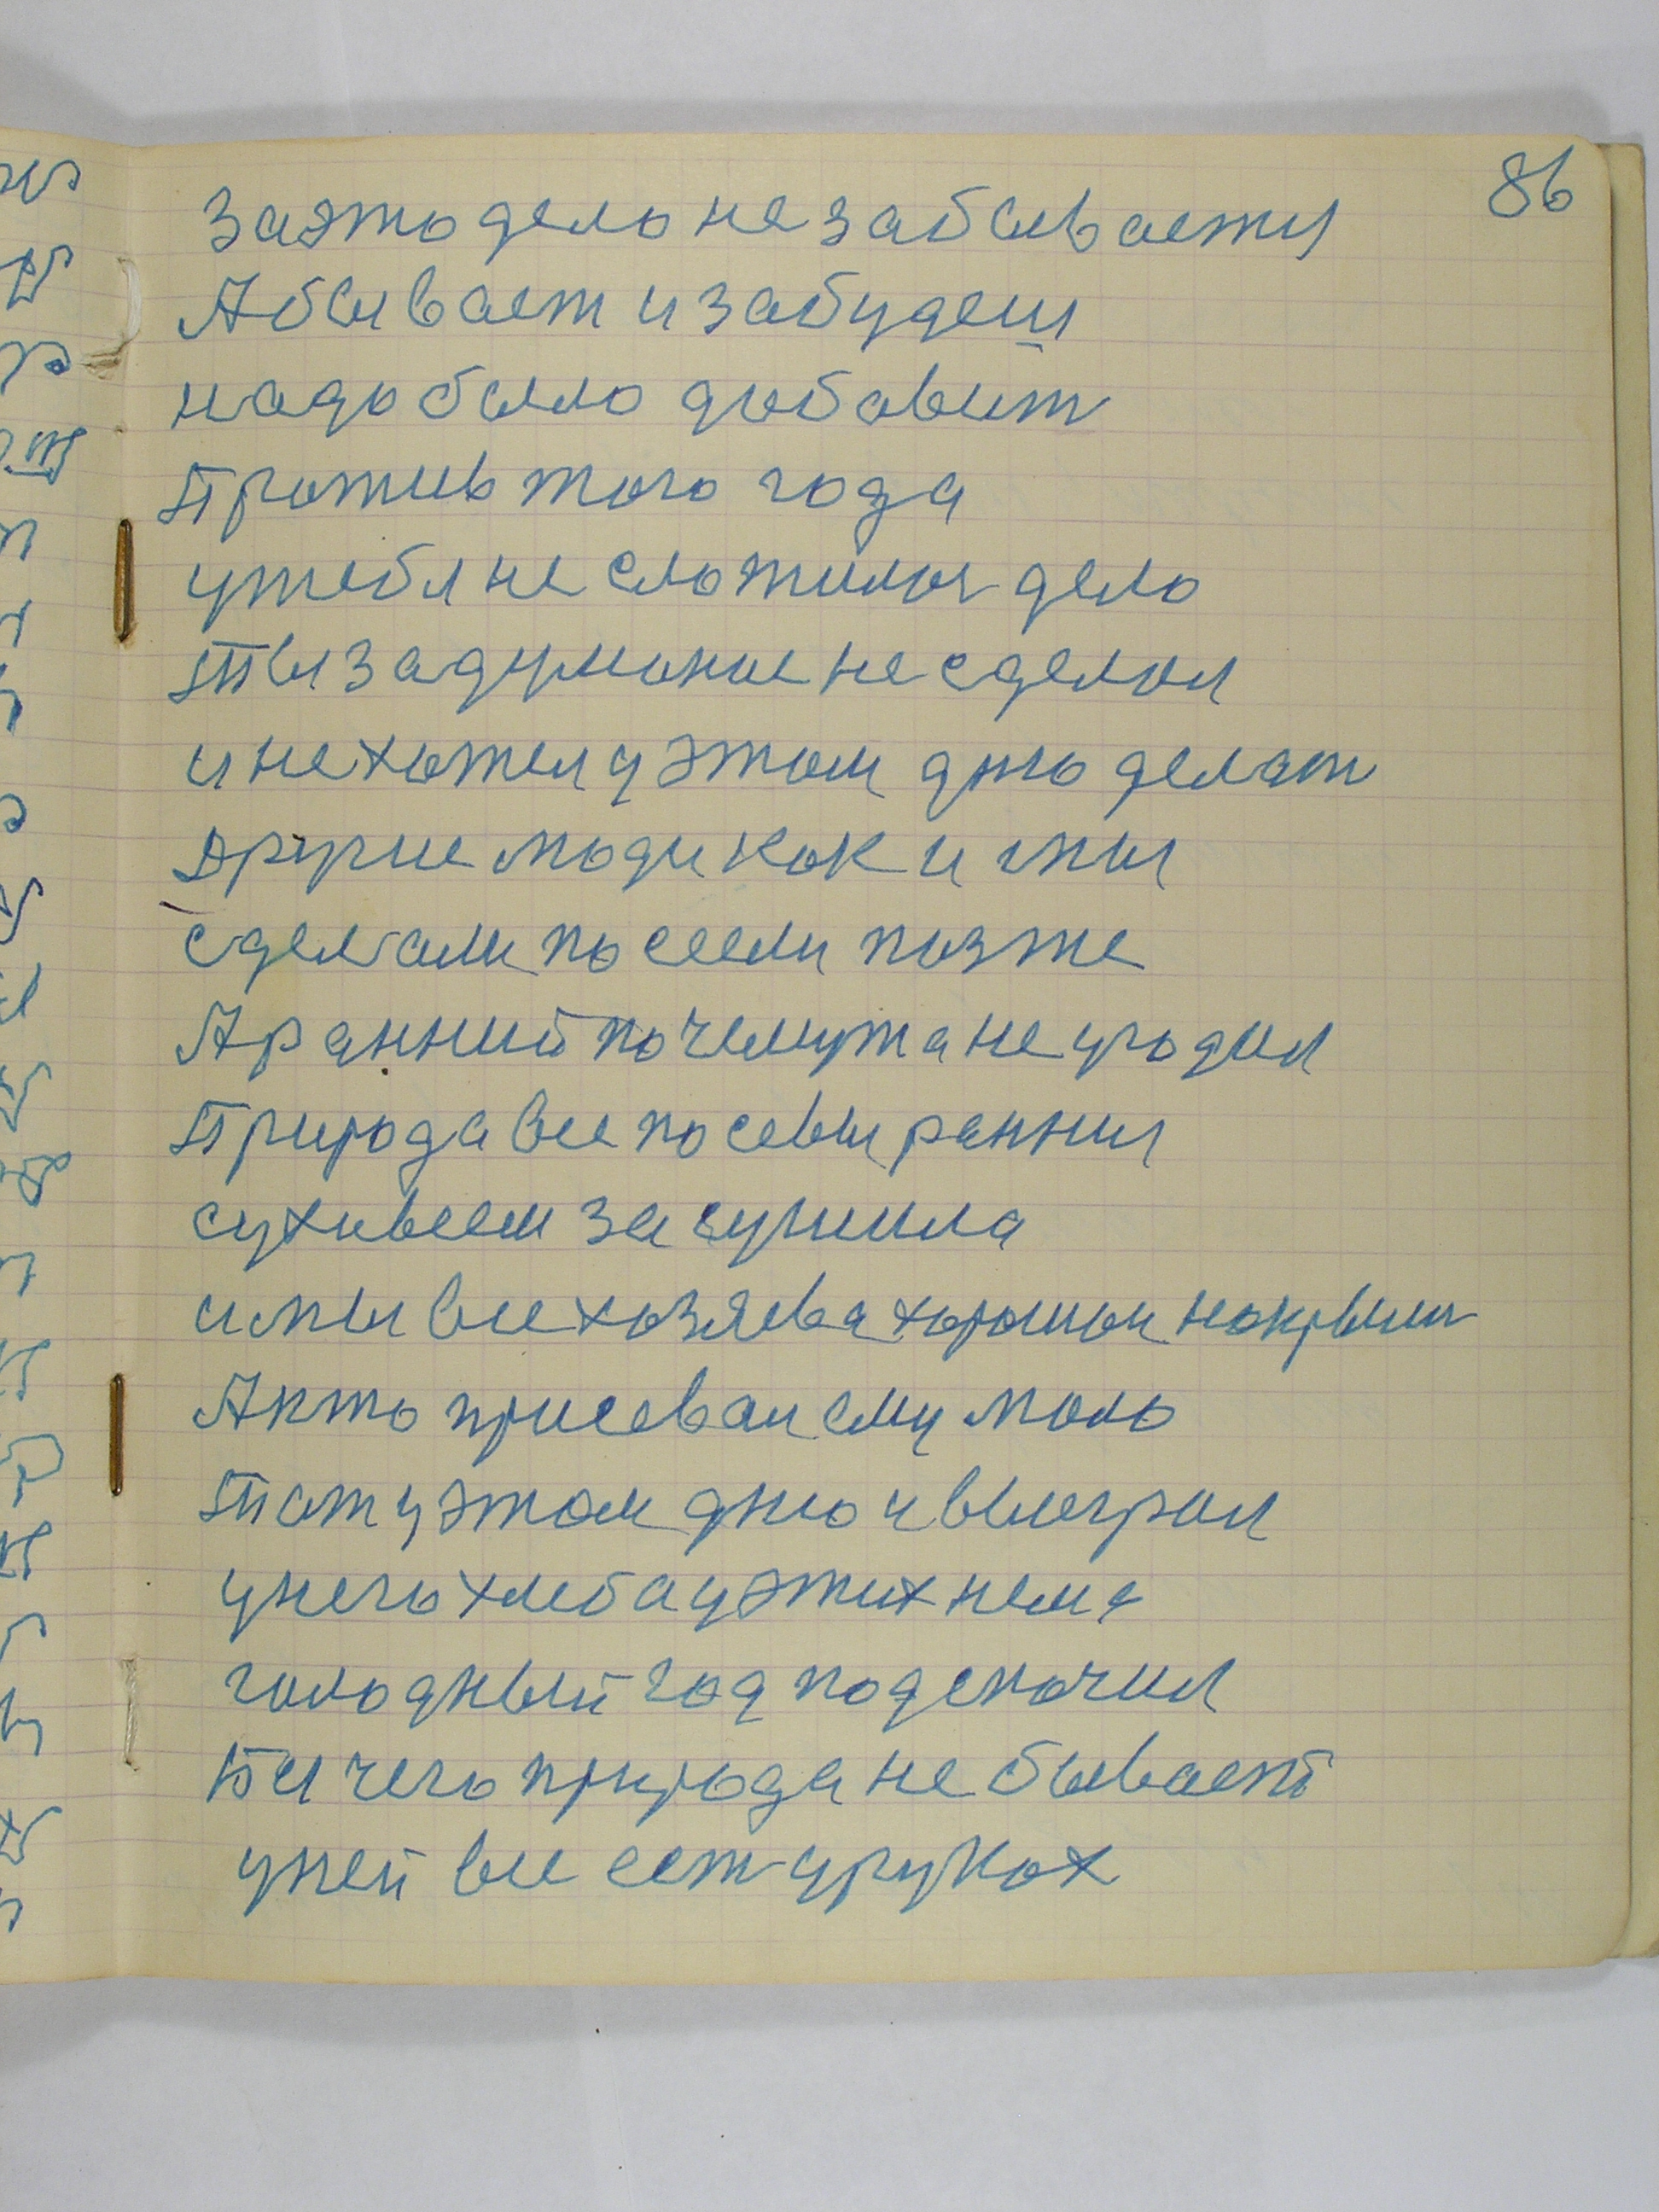 86
заэто дело не забываетя
А бывает и забудеш
надо было добавит
Против того года
утебя не сложилос дело
Ты задуманое не сделал
и не хотел у этом дно делат
другие люди как и мы
сделали посеели позже
А ранний почемута не угодил
Природа все посевы ранния
суховеем засушила
и мы все хозяева хорошои накрылис
А кто присевал ему мало
Тот у этом дню и выиграл
унего хлеб а у этих нема
голодный год подскочил
Бя чего природа не бывает
у ней все ест у руках